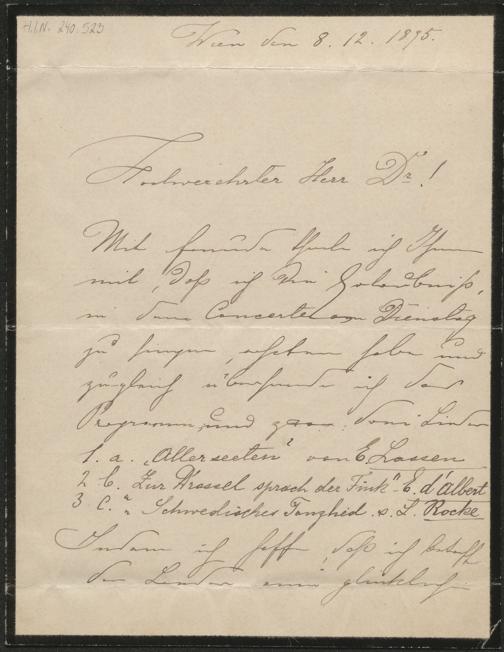 H.I.N. 240.523
Wien den 8. 12. 1895.
Hochverehrter Herr Dr!
Mit Freude theile ich Ihnen
mit, daß ich die Erlaubniß,
in dem Concerte am Dienstag
zu singen, erhalten habe und
zugleich übersende ich das
Programm, und zwar drei Lieder
1. a. „Allerseelen" von E Lassen
2 b. Zur Drossel sprach der Fink" E. d'Albert
3 c. " Schwedisches Tanzlied v. L. Rocke
Indem ich hoffe, daß ich betreffs
der Lieder eine glückliche